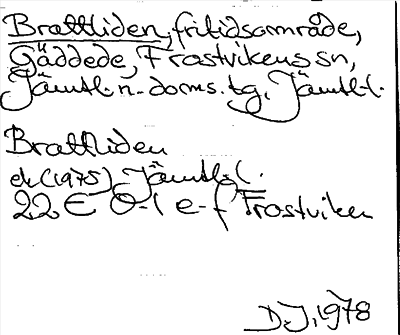 Brattliden, fritidsområde,
Gäddede, Frostvikens sn,
Jämtl. n. doms. tg, Jämtl. l.
Brattliden
ek (1975) Jämtl. l.
22 E 0-1 e-f Frostviken
D.J. 1978